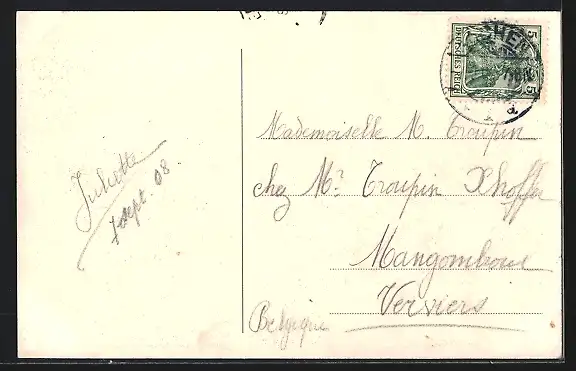 Juliette
7 sept. 08
5 DEUTSCHES REICH 5
Mademoiselle M. Troupin
chez Mr Troupin Xhoffer
Mangombroux
Verviers
Belgique